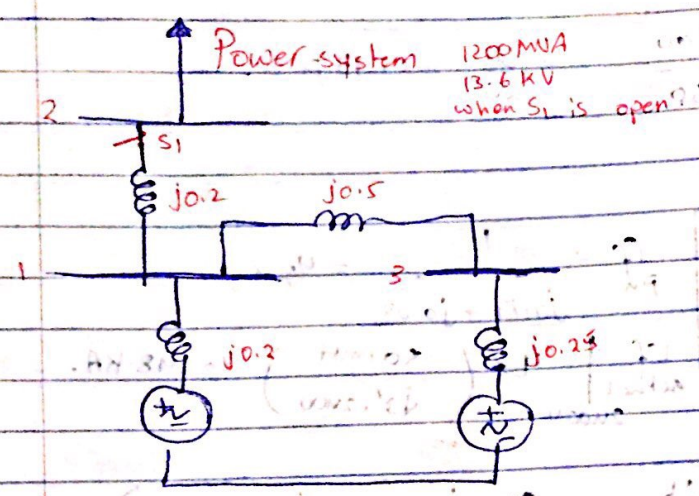 Power system 1200 MVA
13.6 KV
when S1 is open?
2
S1
j0.2
j0.5
1
3
j0.2
j0.25